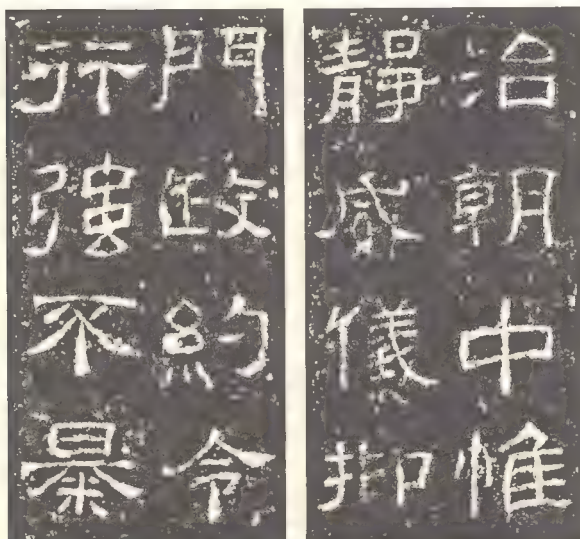 治朝中惟
靜威儀抑
門政約令
行強不暴